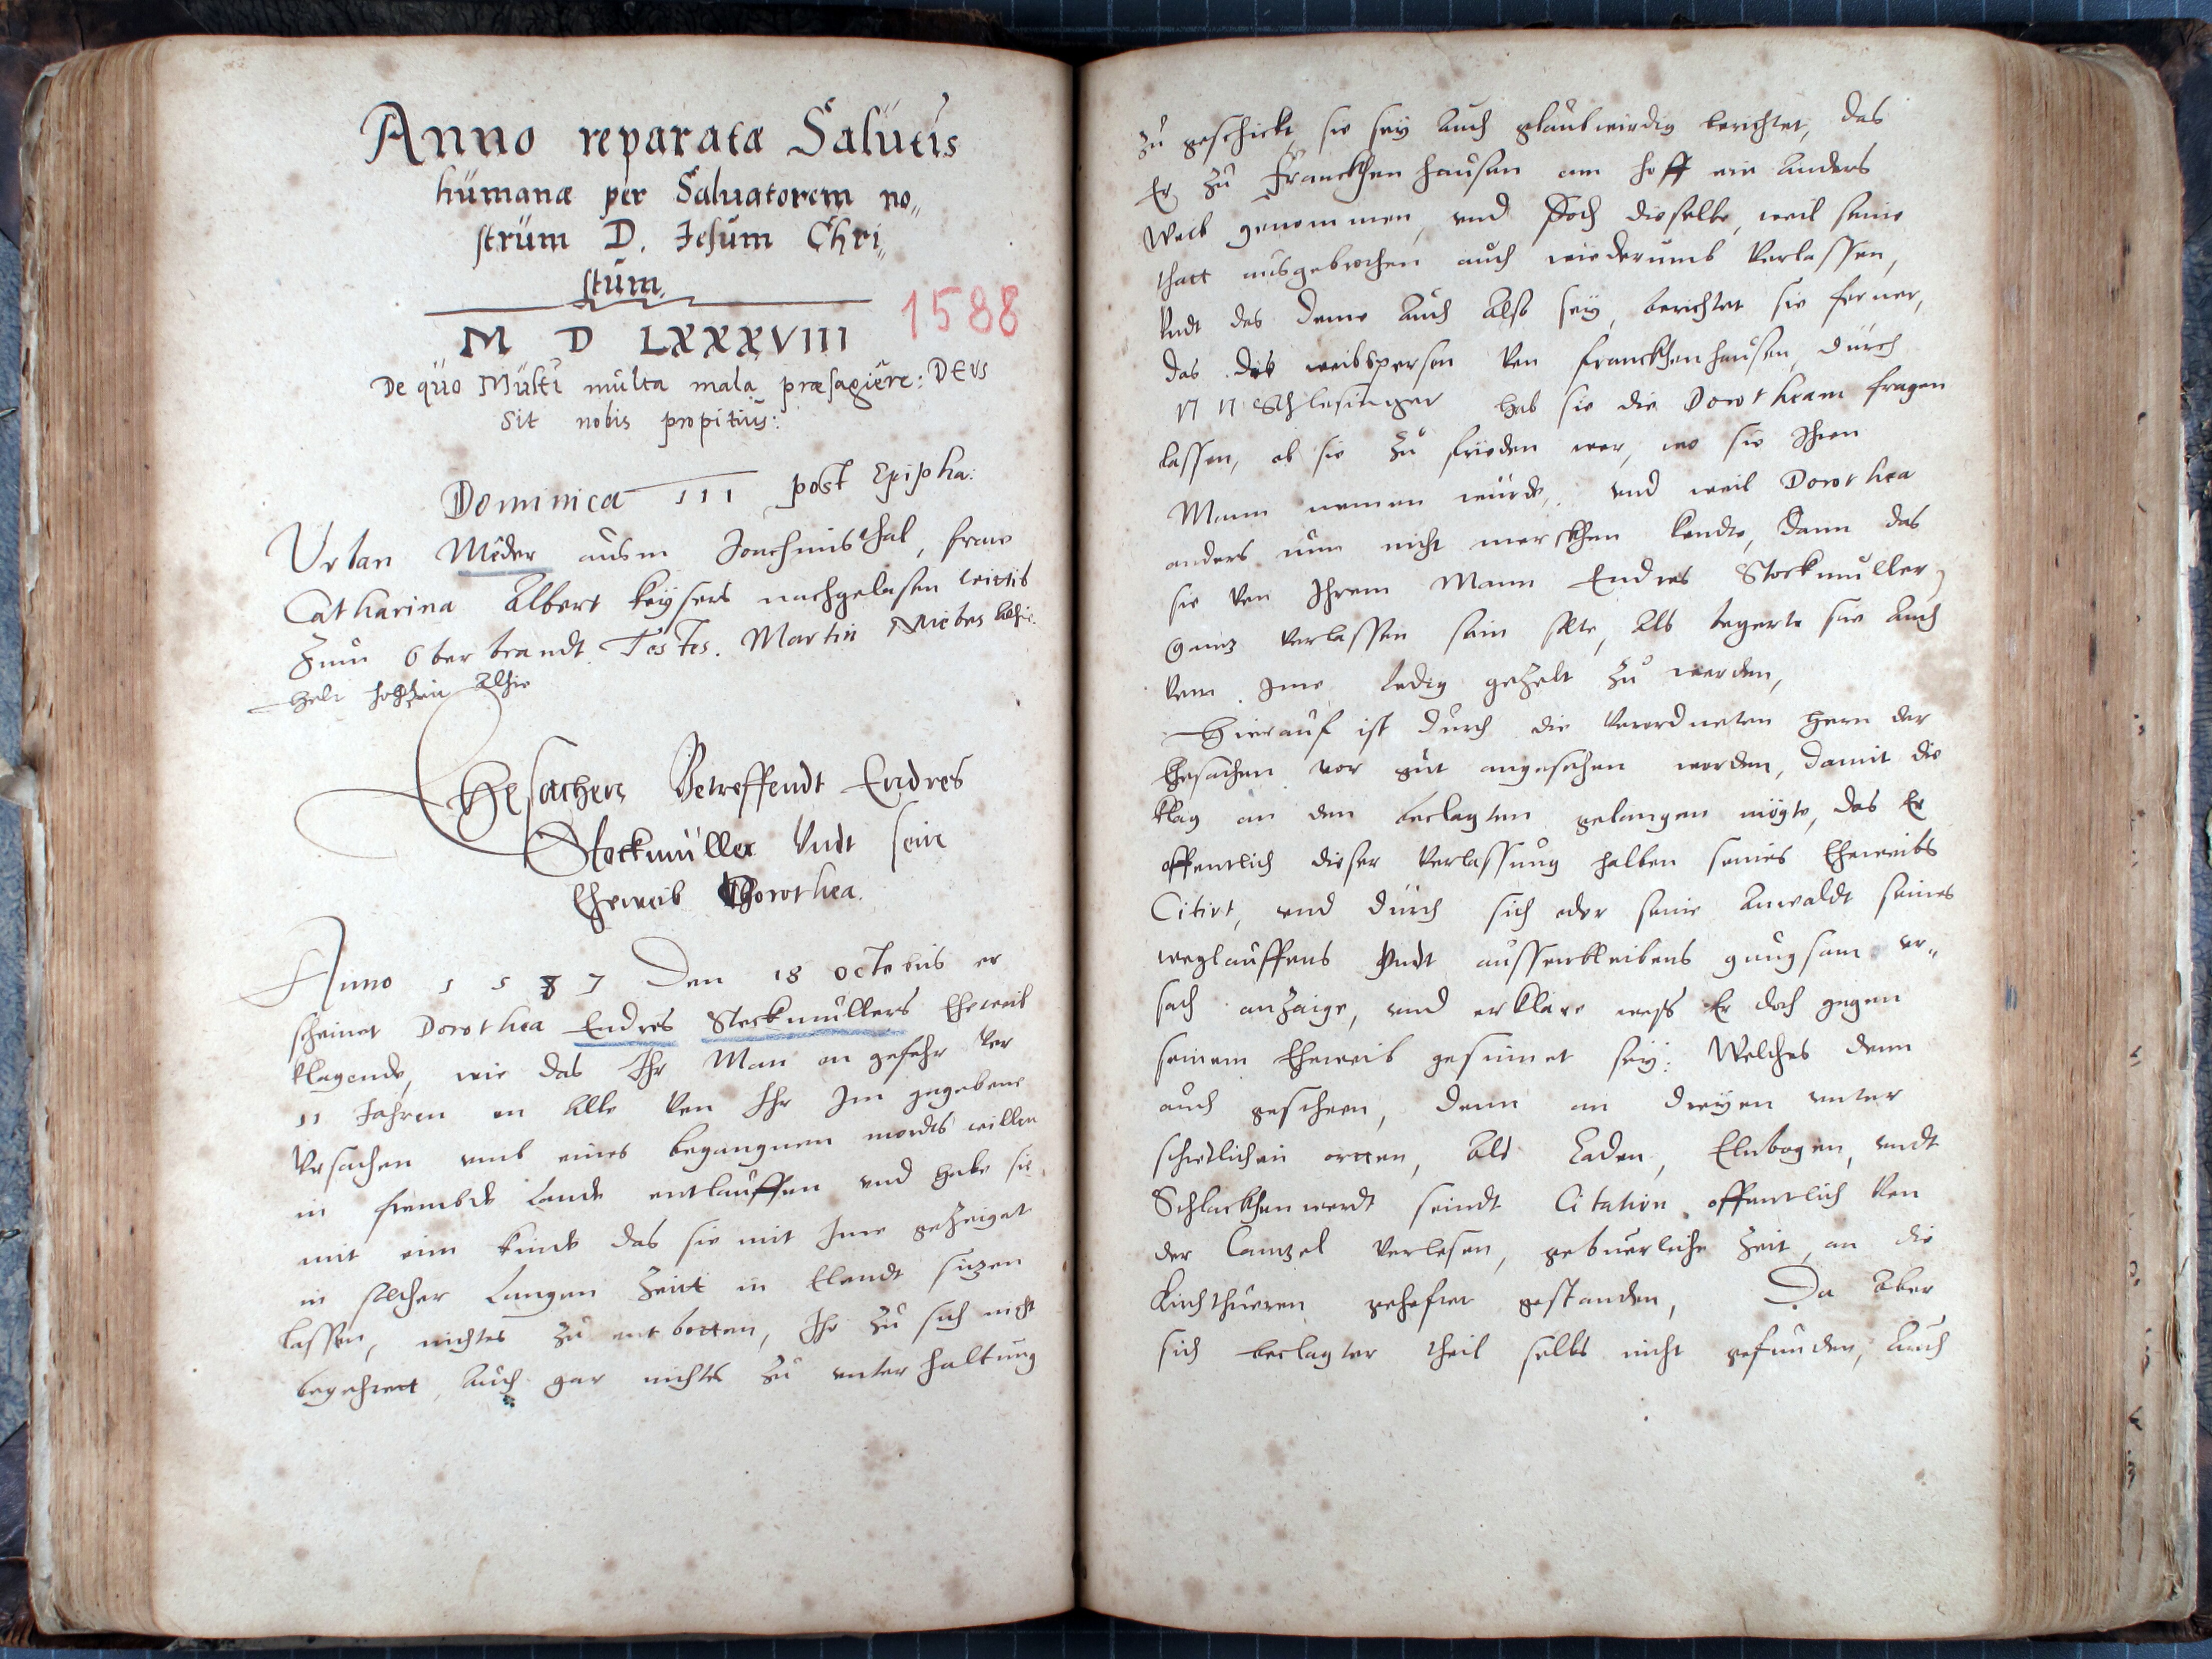 Anno reparatæ Salütis
hümanæ per Saluatorem no„
strüm D. Jesüm Chri„
stüm.
M D LXXXVIII
1588
De qüo Mülti multa mala præsagiere: DEUS
Sit nobis propitius:
Dominica III post Epipha:
Urban Meder ausm Joachimsthal, fraw
Catharina Albert Keysers nachgelasen witib
Zum Oberbrandt. Testes. Martin
Helt hochzeit Alhie
Ehesachen Betreffendt Endres
Stockmüller Vndt sein
Eheweib Dorothea.
Anno 1587 Den 18 octobris er
scheinet Dorothea Endres Stockmüllers Eheweib
klagende, wie das Ihr Man on gefehr Vor
11 Jahren on Alle Von Ihr Im gegebene
Vrsachen vmb eines begangnem mordts willen
in frembde Lande entlauffen vnd habe sie
mit eim kinde das sie mit Ime gezeiget
in solcher Langen Zeitt in Elendt sitzen
lassen, nichtes zu entbotten, Ihr zu sich nicht
begehrett, Auch gar nichts zu vnterhaltung
zu geschickt, sie sey Auch glaubwirdig berichtet, das
Er zu Franckhenhausen am hoff ein Anders
Weib genommen, vnd Doch dieselbe, weil seine
thatt ausgebrochen auch wiederumb Verlassen,
Vndt das deme Auch Also sey, berichtet sie ferner,
das dis weibsperson Von franckhenhausen, durch
N N Schlesinger hab sie die Dorotheam fragen
lassen, ob sie zu frieden wer, wo sie Ihren
Mann nemen würde, vnd weil Dorothea
anders nun nicht merckhen kondte, Dann das
sie Von Ihrem Mann Endres Stockmuller
Gantz Verlassen sein solte, Als begerte sie Auch
Von Ime Ledig gezelt zu werden,
Hierauf ist durch die Verordneten Hern der
Ehesachen vor gut angesehen worden, damit die
klag an den beclagten gelangen mögte, das Er
offentlich dieser Verlassung halben seines Eheweibs
Citirt, vnd durch sich oder seine Anwaldt seines
weglauffens Vndt aussenbleibens gnugsam vr„
sach anzaige, vnd erklare wess Er doch gegen
seinem Eheweib gesinnet sey: Welches denn
auch gescheen, denn an dreyen vnter
schiedlichen ortten, Als Caden, Elnbogen, vndt
Schlackhenwerdt seindt Citation offentlich Von
der Cantzel Verlesen, gebuerliche Zeit, an die
Kirchthueren gehefftet gestanden, Da Aber
sich beclagter theil selbs nicht gefunden, Auch